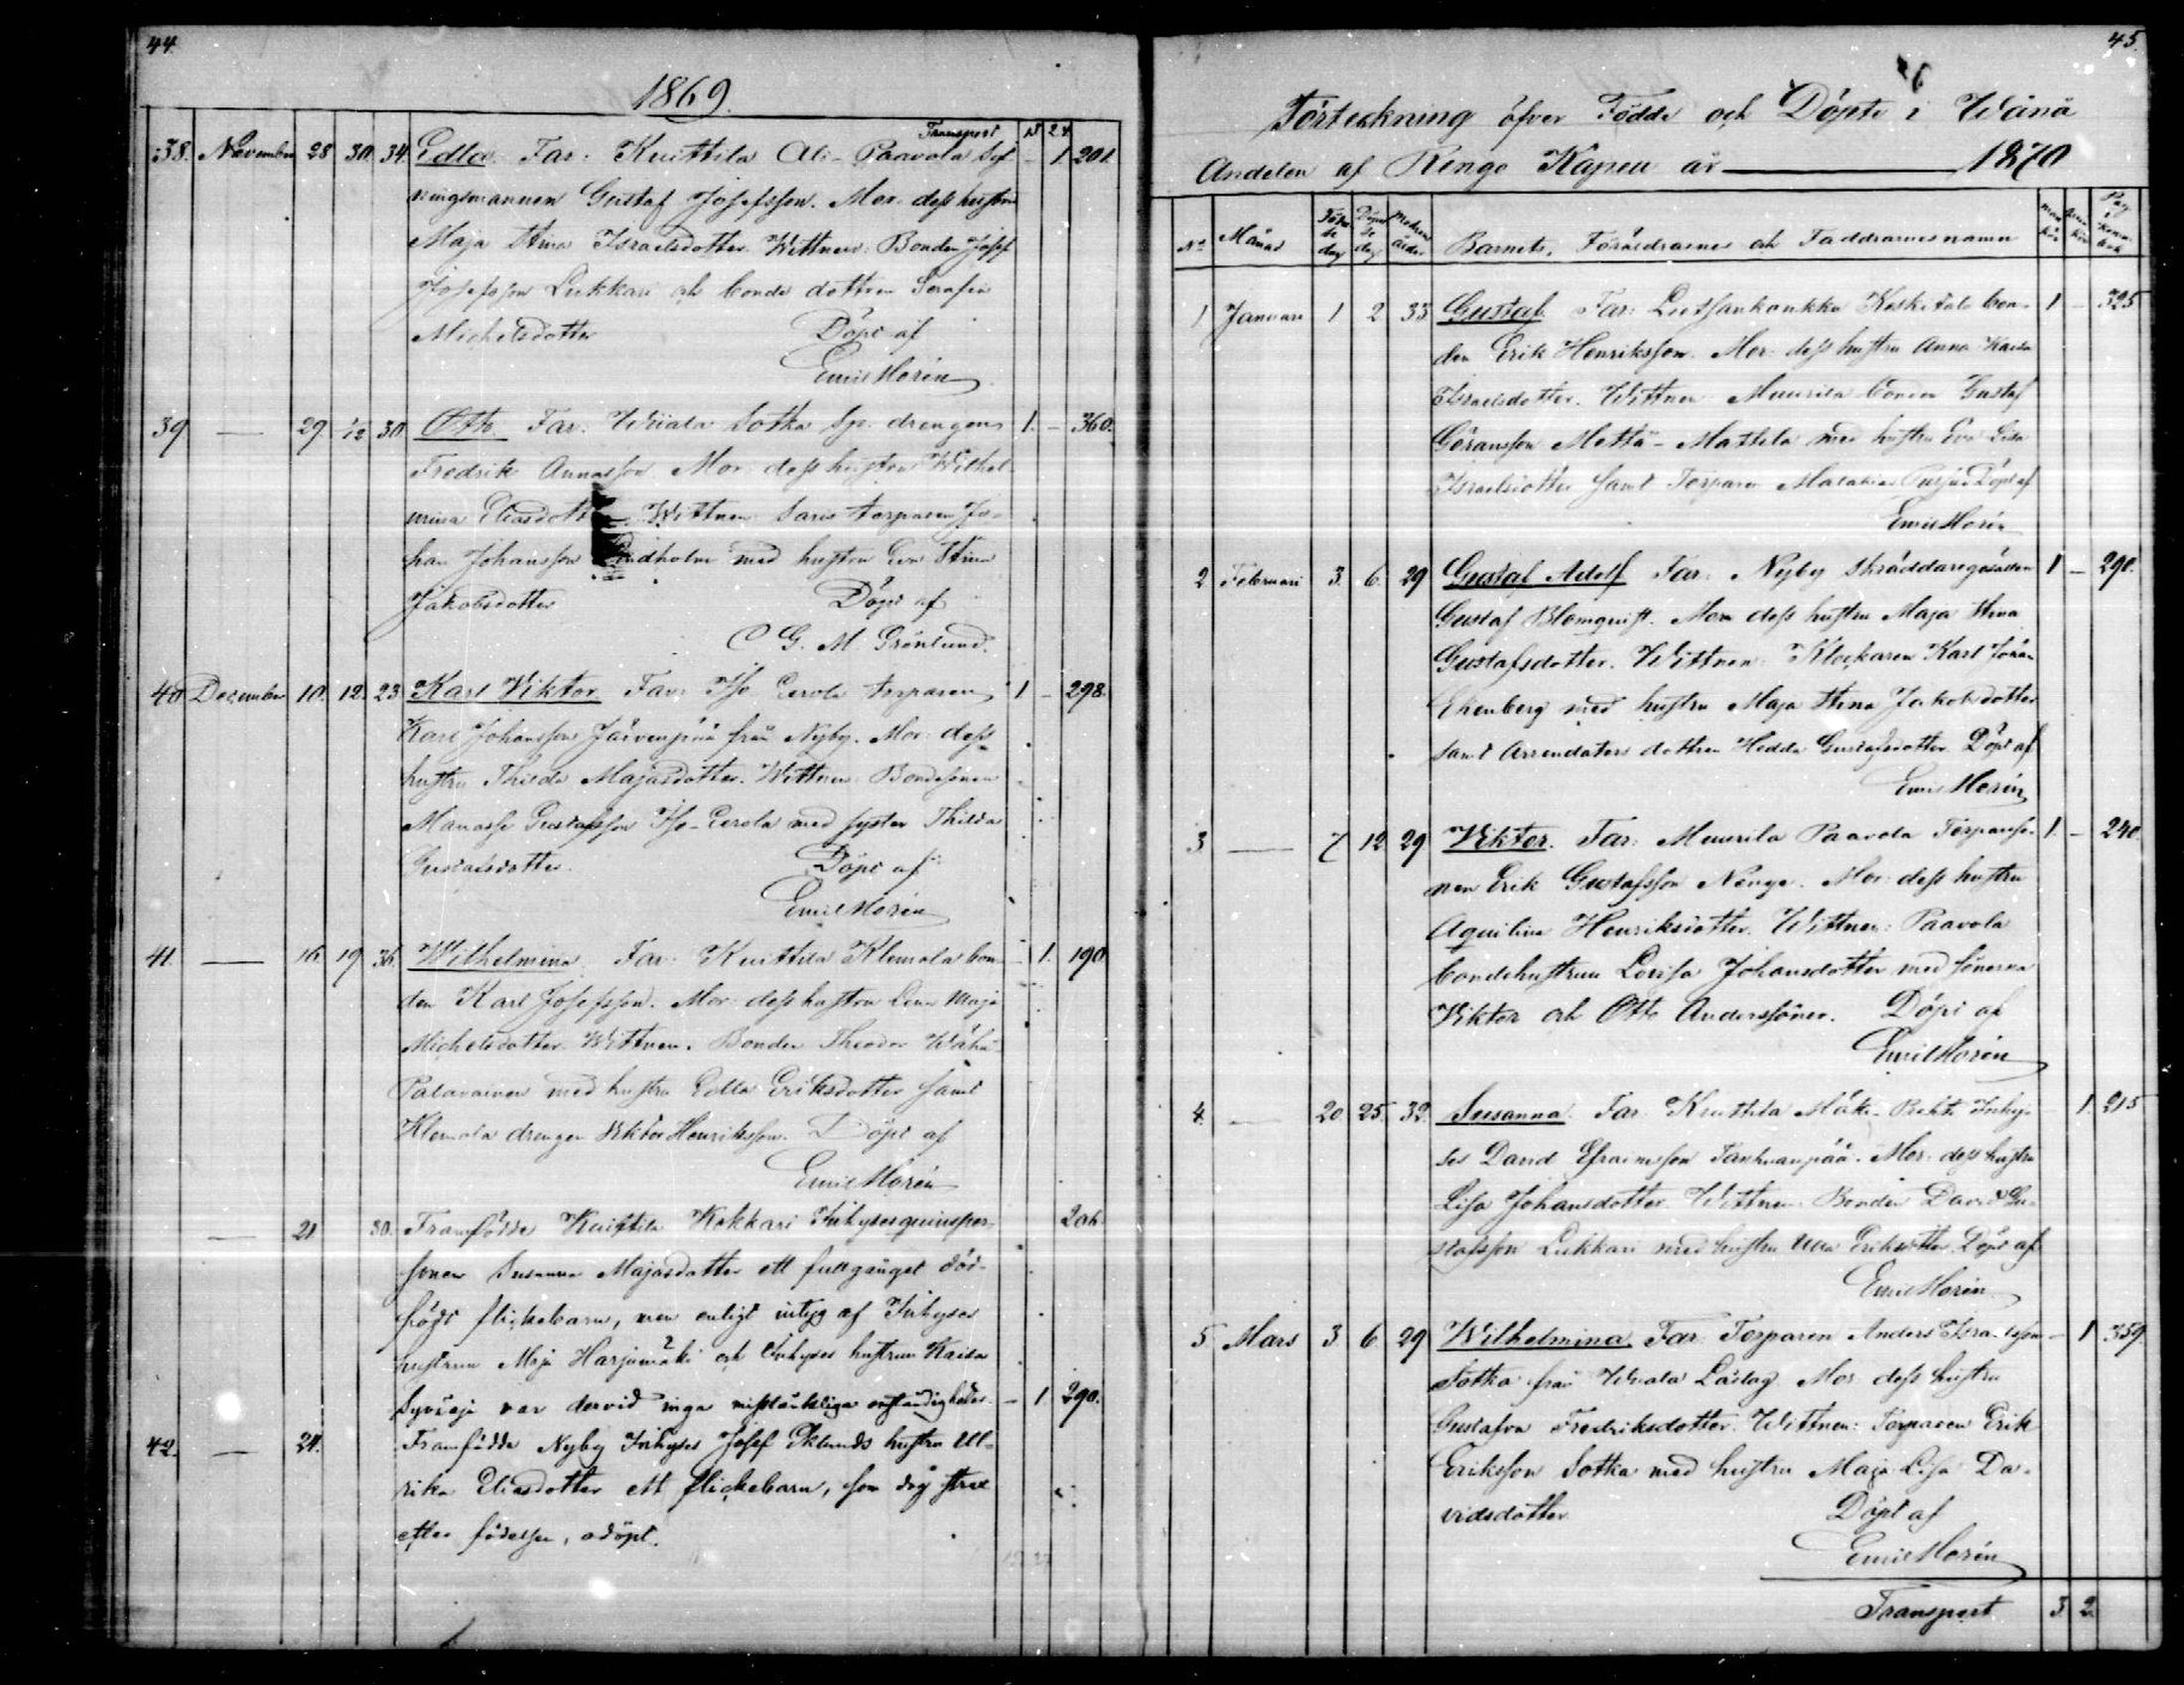 44.
1869.
Transport
38. November 28 30. 34. Edla. Far: Kuittila Ali-Paavola Syt- - 1 201.
ningsmannen Gustaf Josefsson. Mor: dess hustru
Maja Stina Israelsdotter. Wittnen: Bonden Josef
Josefsson Lukkari och bonde dottren Serafia
Michelsdotter Döpt af
Emil Horén
39 — 29. 1/12 30 Otto. Far: Wuiala Sotka Sp. drengens 1. - 360.
Fredrik Annasson Mor: dess hustru Wilhel-
mina Eliasdotter. Wittnen: Saris torparen Jo-
han Johansson Lindholm med hustru Eva Stina
Jakobsdotter Döpt af
C G. M. Grönlund.
40 December 10. 12. 23. Karl Viktor Far: Iso Eerola torparen 1 - 298.
Karl Johansson Järvenpää från Nyby. Mor: dess
hustru Thilda Majasdotter. Wittnen: Bondesonen
Manasse Gustafsson Iso-Eerola med syster Thilda
Gustafsdotter. Döpt af
Emil Horén
41. — 16 19 36. Wilhelmina. Far: Kuittila Klemola bon- - 1. 190
den Karl Josefsson. Mor: dess hustru Lena Maja
Michelsdotter. Wittnen. Bonden Theodor Wähä-
Palavainen med hustru Edla Eriksdotter samt
Klemola drengen Viktor Henriksson. Döpt af
Emil Horén
— 21 30. Framfödde Kuittila Kokkari Inhysesquinsper- 206.
sonen Susanna Majasdotter ett fullgånget död-
födt flickebarn, men enligt intyg af Inhyses
hustrun Maja Harjumäki och Inhyses hustrun Kaisa
Syväoja var dervid inga misstänkliga omständigheter. - 1 290.
42. — 24. Framfödde Nyby Inhyses Josef Eklunds hustru Ul-
rika Eliasdotter ett flickebarn, som dog strax
efter födelsen, odöpt.
45.
Förteckning öfver Födde och Döpte i Wånå
Andelen af Rengo Kapell år 1870
No Månad Födelse dag Döpelse dag Modrens ålder Barnets, Föräldrarnes och Faddrarnes namn
1 Januari 1 2 33 Gustaf. Far: Luttsankonkka Keskitalo bon- 1 - 325
den Erik Henriksson. Mor: dess hustru Anna Kaisa
Israelsdotter. Wittnen Muurila bonden Gustaf
Göransson Mettä-Mattila med hustru Eva Lisa
Israelsdotter samt Torparen Malakias Döpt af
Emil Horén
2 Februari 3. 6. 29 Gustaf Adolf Far: Nyby Skräddaregesällen 1 - 290.
Gustaf Blomqvist. Mor: dess hustru Maja Stina
Gustafsdotter. Wittnen: Klockaren Karl Johan
Ekenberg med hustru Maja Stina Jakobsdotter
samt Arrendators dottren Hedda Gustafsdotter Döpt af
Emil Horén
3 — 7 12 29 Viktor. Far: Muurila Paavola Torpareso- 1. - 240
nen Erik Gustafsson Nenge. Mor: dess hustru
Aquilina Henriksdotter. Wittnen: Paavola
bondehustrun Lovisa Johansdotter med sönerna
Viktor och Otto Anderssöner. Döpt af
Emil Horén
4. — 20 25. 32. Susanna. Far: Kuittila Mäki-Rekti Inhy- 1. 215
ses David Efraimsson Tanhuanpää. Mor: dess hustru
Lisa Johansdotter. Wittnen: Bonden David Gu-
stafsson Lukkari med hustru Ulla Eriksdotter. Döpt af
Emil Horén
5 Mars 3 6 29 Wilhelmina. Far: Torparen Anders Israelsson - 1 359.
Sotka från Wuiala Låslag. Mor dess hustru
Gustafva Fredriksdotter. Wittnen: Torparen Erik
Eriksson Sotka med hustru Maja Lisa Da-
vidsdotter Döpt af
Emil Horén
Transport 3 2